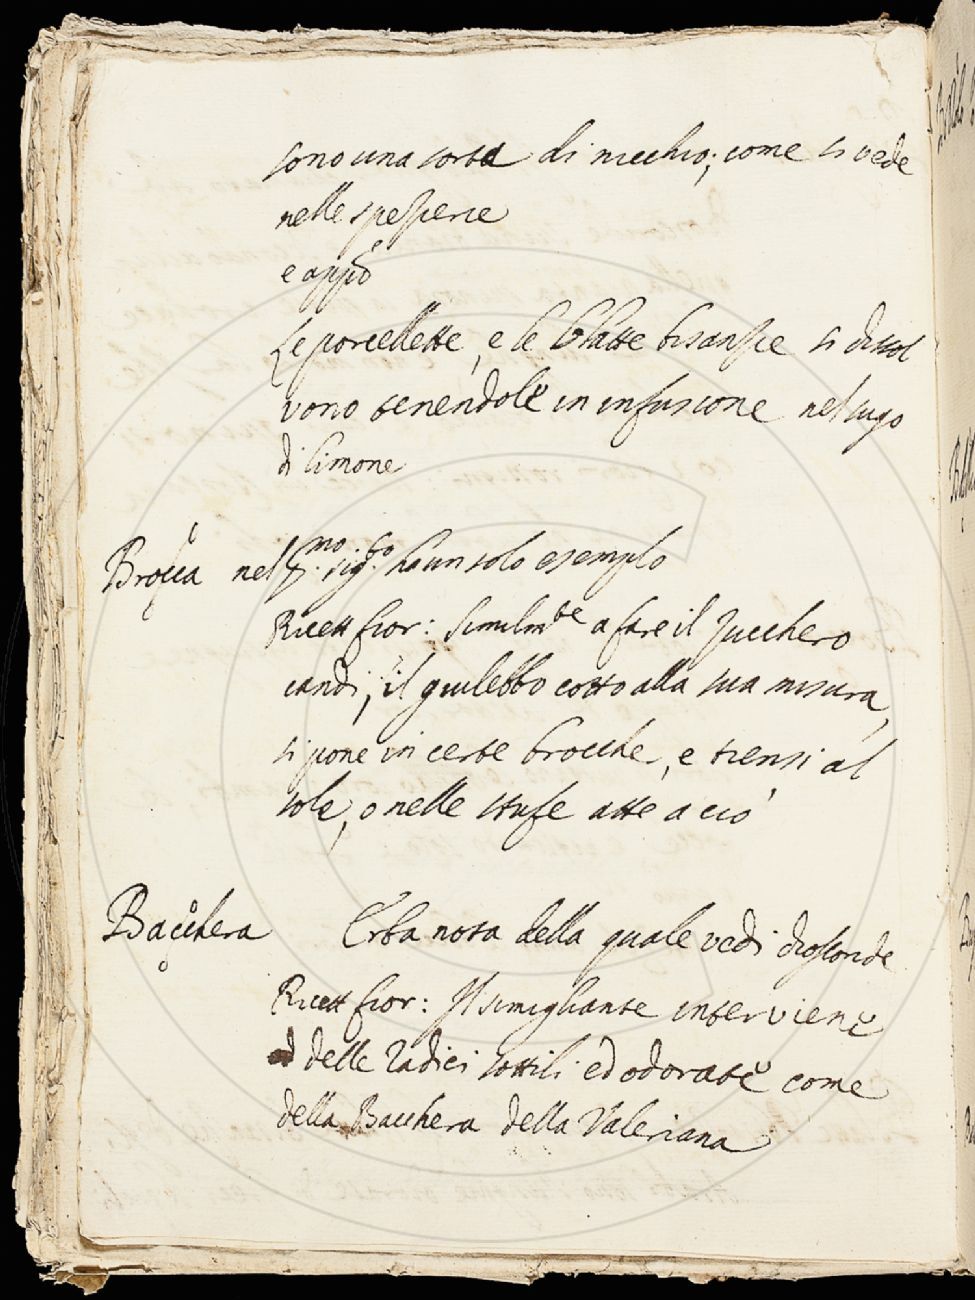 sono una sorta di nicchio; come si vede
nelle spezierie
e app.o
Le porcellette, e le blatte bisanzie si dissol
vono tenendole in infusione nel sugo
di limone
Brocca nel sig. ha un solo esempio
Ricett fior: Similmte a fare il zucchero
candi, il giulebbo cotto alla sua misura,
si pone in certe brocche, e tiensi al
sole, o nelle stufe atte a ciò
Bacchera Erba nota della quale vedi dioscoride
Ricett fior: Il simigliante interviene
delle radici sottili ed odorate come
della Bacchera della Valeriana